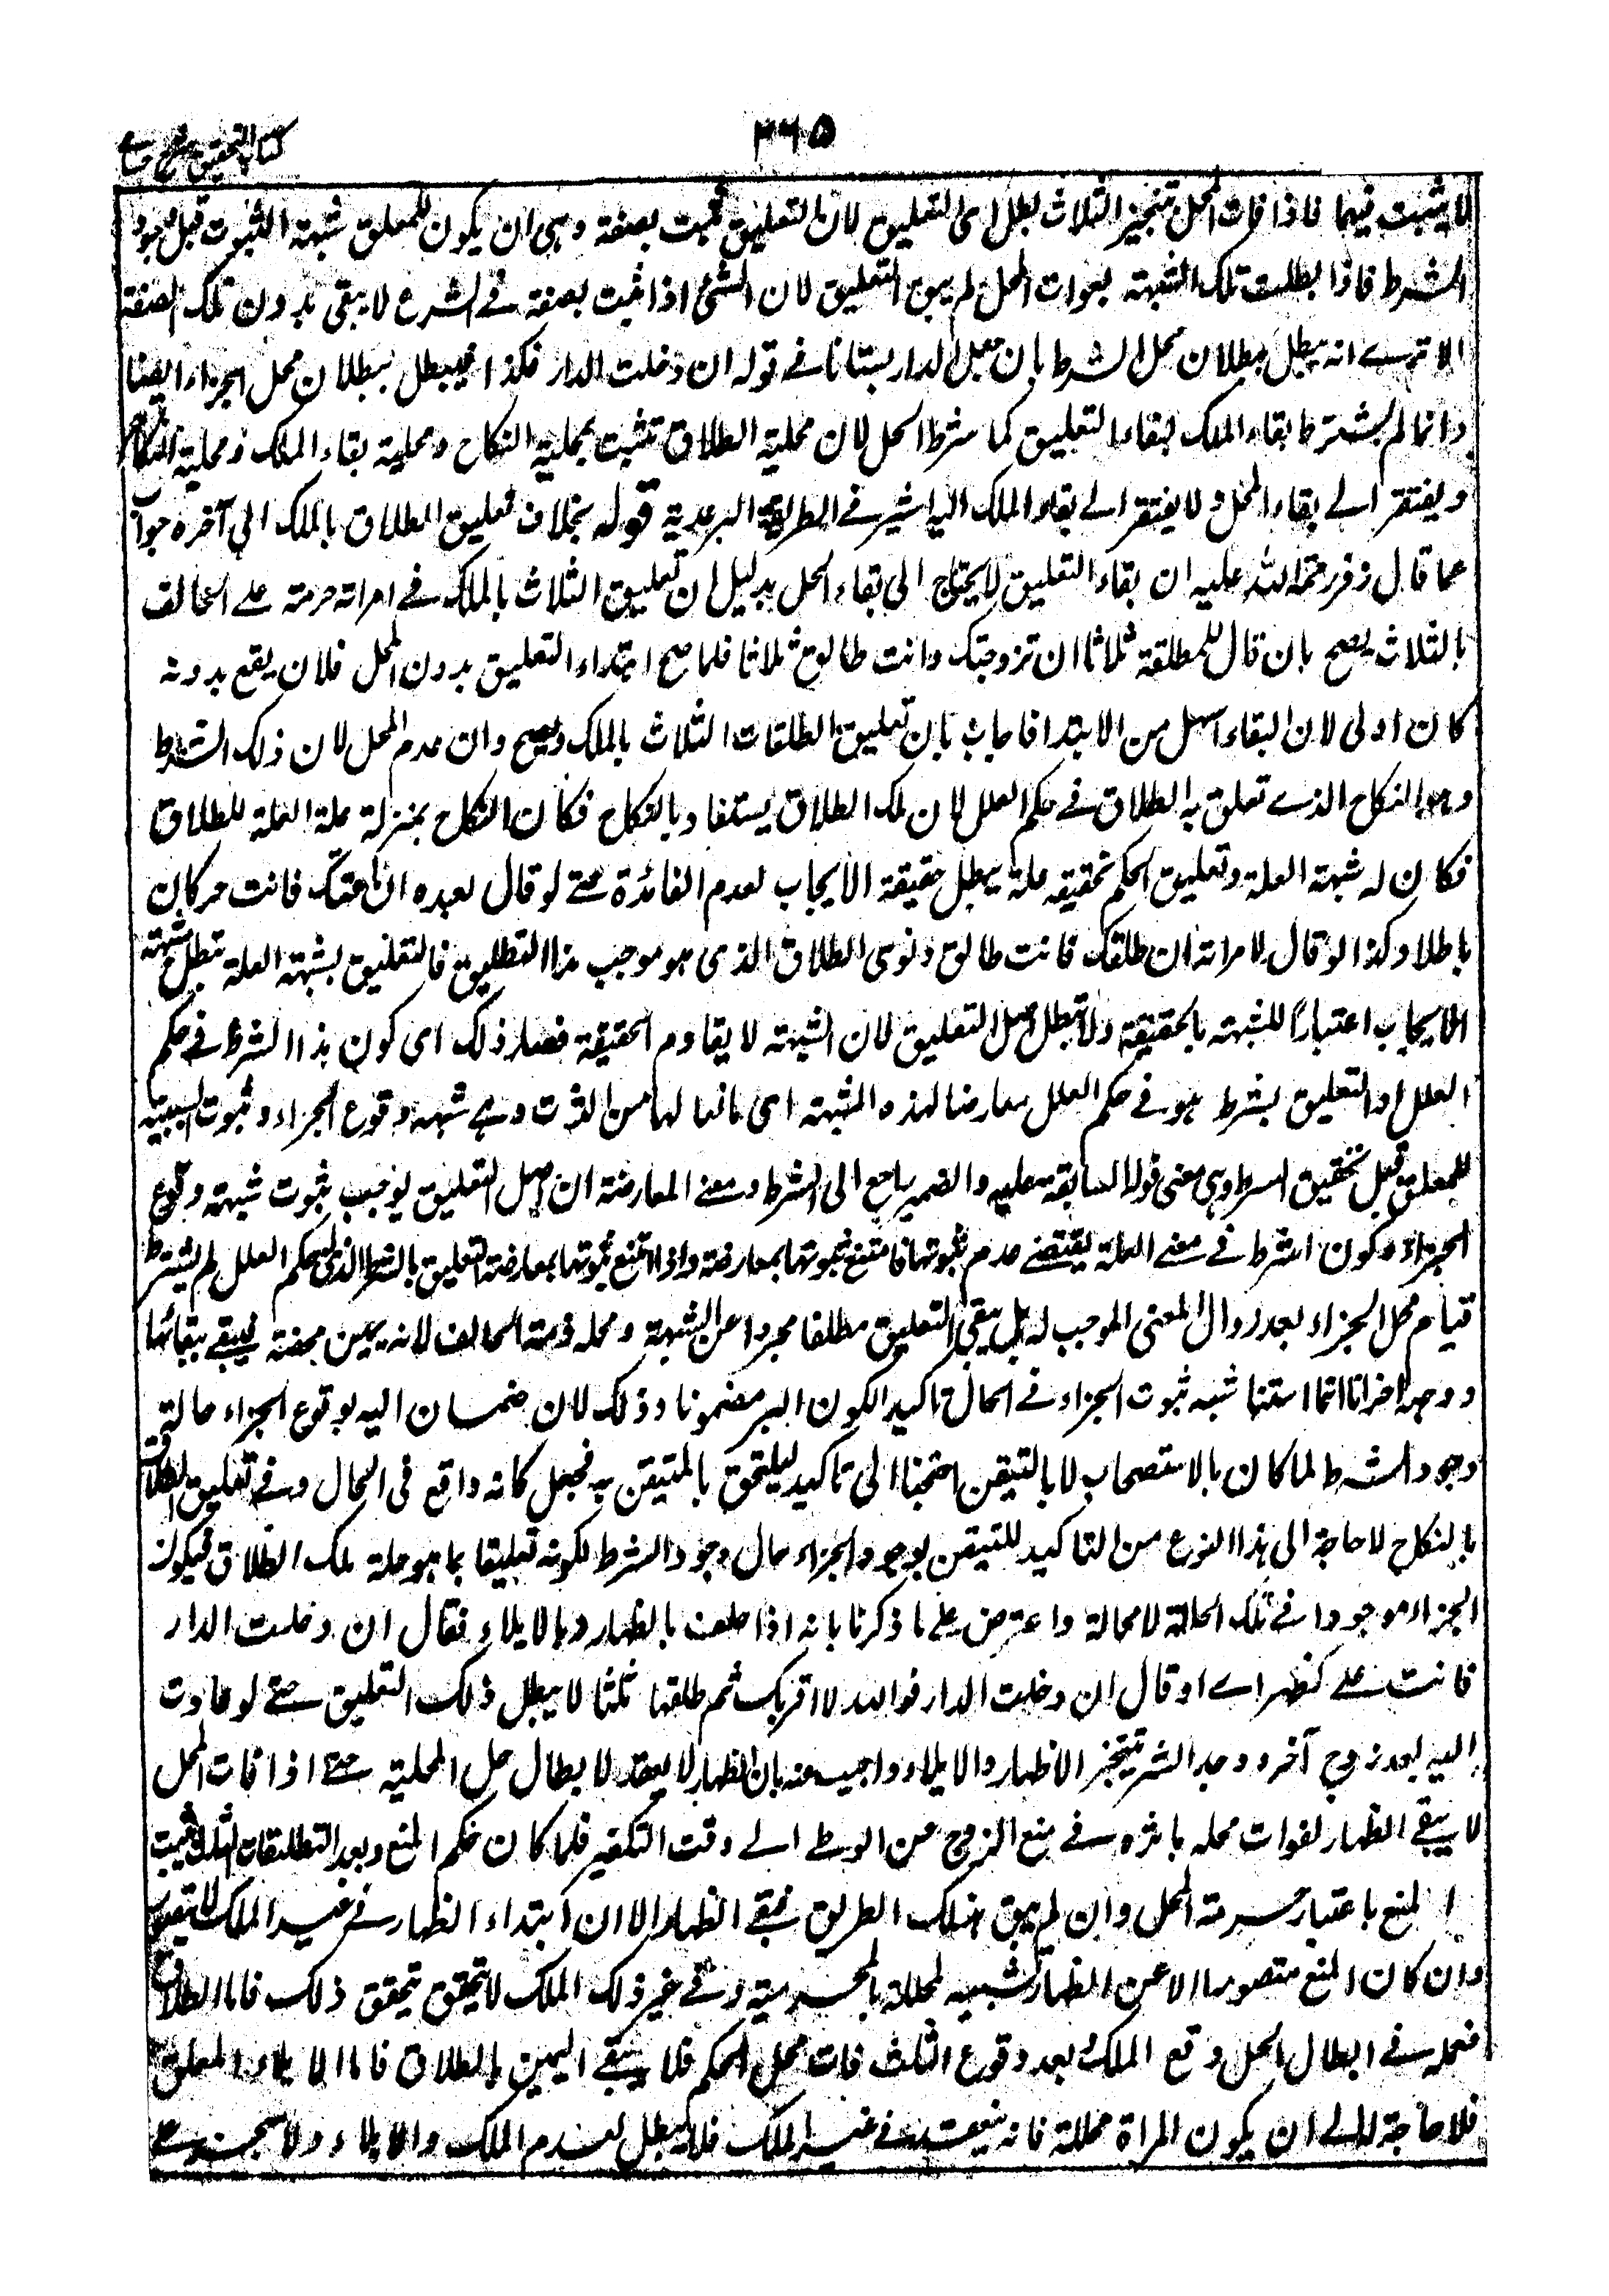 ٣٦٥
كتاب التحقيق شرح حسامي
لا يثبت فيهما فاذا فات المحل بتنجيز الثلاث بطل اى التعليق لان التعليق ثبت بصفة وهى ان يكون للمعلق شبهة الثبوت قبل وجود
الشرط فاذا بطلت تلك الشبهة بفوات المحل لم يبق التعليق لان الشئ اذا ثبت بصفة فے الشرع لا يبقى بدون تلك الصفة
الا ترے انه يبطل ببطلان محل الشرط بان جعل الدار بستانا فے قوله ان دخلت الدار فكذا يبطل ببطلان محل الجزاء ايضا
وانما لم يشترط بقاء الملك لبقاء التعليق كما شرط الحل لان محلية الطلاق تثبت بمحلية النكاح ومحلية بقاء الملك ومحلية النكاح
ويفتقر الے بقاء المحل ولا يفتقر الے بقاء الملك اليه اشير فے الطريقة البرعدية قوله بخلاف تعليق الطلاق بالملك الى آخره جواب
عما قال زفر رحمة الله عليه ان بقاء التعليق لا يحتاج الى بقاء الحل بدليل ان تعليق الثلاث بالملك فے امراته حرمت علے الحالف
بالثلاث يصح بان قال للمطلقة ثلاثا ان تزوجتك وانت طالق ثلاثا فلما صح ابتداء التعليق بدون المحل فلان يقع بدونه
كان اولى لان البقاء اسهل من الابتدا فاجاب بان تعليق الطلقات الثلاث بالملك يصح وان عدم المحل لان ذلك الشرط
وهو النكاح الذے تعلق به الطلاق فے حكم العلل لان ملك الطلاق يستفاد بالنكاح فكان النكاح بمنزلة علة العلة للطلاق
فكان له شبهة العلة وتعليق الحكم بحقيقة علة يبطل حقيقة الايجاب لعدم الفائدة حتے لو قال لعبده ان اعتقتك فانت حر كان
باطلا وكذا لو قال لامراته ان طلقتك فانت طالق ونوى الطلاق الذى هو موجب هذا التطليق فالتعليق بشبهة العلة تبطل شبهة
الايجاب اعتبارًا للشبهة بالحقيقة ولا تبطل اصل التعليق لان الشبهة لا يقاوم الحقيقة فصار ذلك اى كون هذا الشرط فے حكم
العلل او التعليق بشرط هو فے حكم العلل معارضا لهذه الشبهة اى مانعا لها من الثبوت وهے شبهة وقوع الجزاء وثبوت السببية
للمعلق قبل تحقيق الشرط وهى معنى قوله السابقة عليه والضمير راجع الى الشرط ومعنے المعارضة ان اصل التعليق يوجب ثبوت شبهة وقوع
الجزاء وكون الشرط فے معنے العلة يقتضے عدم ثبوتها فامتنع ثبوتها بمعارضة واذا امتنع ثبوتها بمعارضة التعليق بالشرط الذى فى حكم العلل لم يشترط
قيام محل الجزاء بعد زوال المعنى الموجب له بل يبقى التعليق مطلقا مجردا عن الشبهة ومحله ذمة الحالف لانه يمين محضة فيبقے ببقائها
ووجه اخر انا انما اثبتنا شبه ثبوت الجزاء فے الحال تاكيد الكون البر مضمونا وذلك لان ضمان البر بوقوع الجزاء حالة
وجود الشرط لما كان بالاستصحاب لا بالتيقن احتجنا الى تاكيد ليلتحق بالمتيقن به فجعل كانه واقع فى الحال وفے تعليق الطلاق
بالنكاح لا حاجة الى هذا النوع من التاكيد للتيقن بوجود الجزاء حال وجود الشرط لكونه تعليقا بما هو علة ملك الطلاق فيكون
الجزاء موجودا فے تلك الحالة لا محالة واعترض علے ما ذكرنا بانه اذا حلف بالظهار وبالايلاء فقال ان دخلت الدار
فانت علے كظهر امے او قال ان دخلت الدار فوالله لا اقربك ثم طلقها ثلثا لا يبطل ذلك التعليق حتے لو عادت
اليه بعد زوج آخر ووجد الشر يتنجز الاظهار والايلاء واجيب عنه بان الظهار لا يعقد لابطال حل المحلية حتے اذا فات المحل
لا يبقے الظهار لفوات محله باثره فے منع الزوج عن الوطے الے وقت التكفير فلما كان حكم المنع وبعد التطليقات الثلاث يثبت
المنع باعتبار حرمة المحل وان لم يبق بذلك الطريق فبقے الظهار الا ان ابتداء الظهار فے غير الملك لا يتصور
وان كان المنع متصورا الا عن الظهار تشبيه المحللة بالمحرمية وفے غير ذلك الملك لا يتحقق ذلك فاما الطلاق
فعمله فے ابطال الحل وقع الملك وبعد وقوع الثلث فات محل الحكم فلا يبقے اليمين بالطلاق فاما الايلاء المعلق
فلا حاجة الے ان يكون المراة محللة فانه ينعقد فے غير الملك فلا يبطل لعدم الملك والايلاء